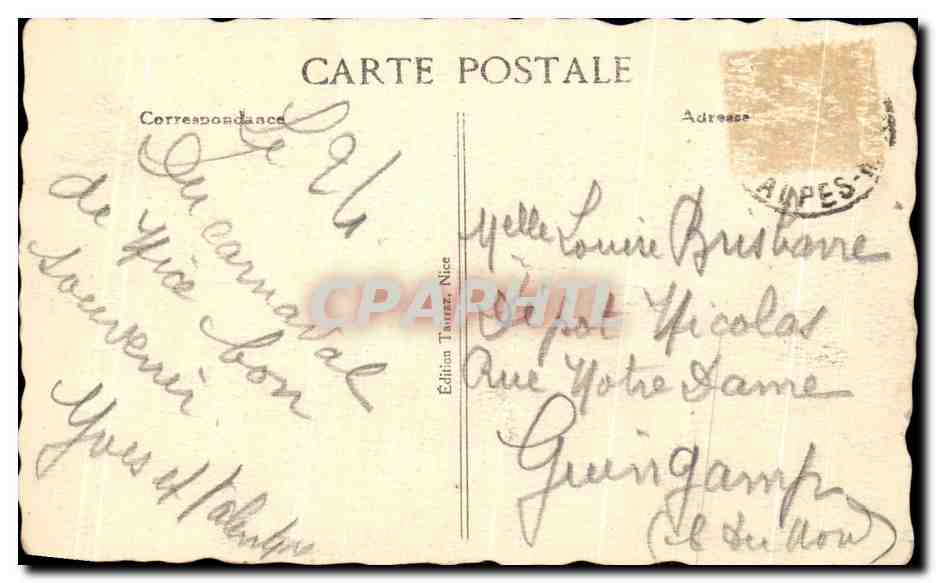 CARTE POSTALE
Correspondance
Adresse
ALPES-
Le 21
Du carnaval
de Nice bon
souvenir
Yves et Valentine
Edition Tairraz, Nice
CPARHIL
Melle Louise
Dépot Nicolas
Rue Notre Dame
Guingamp
(C du Nord)